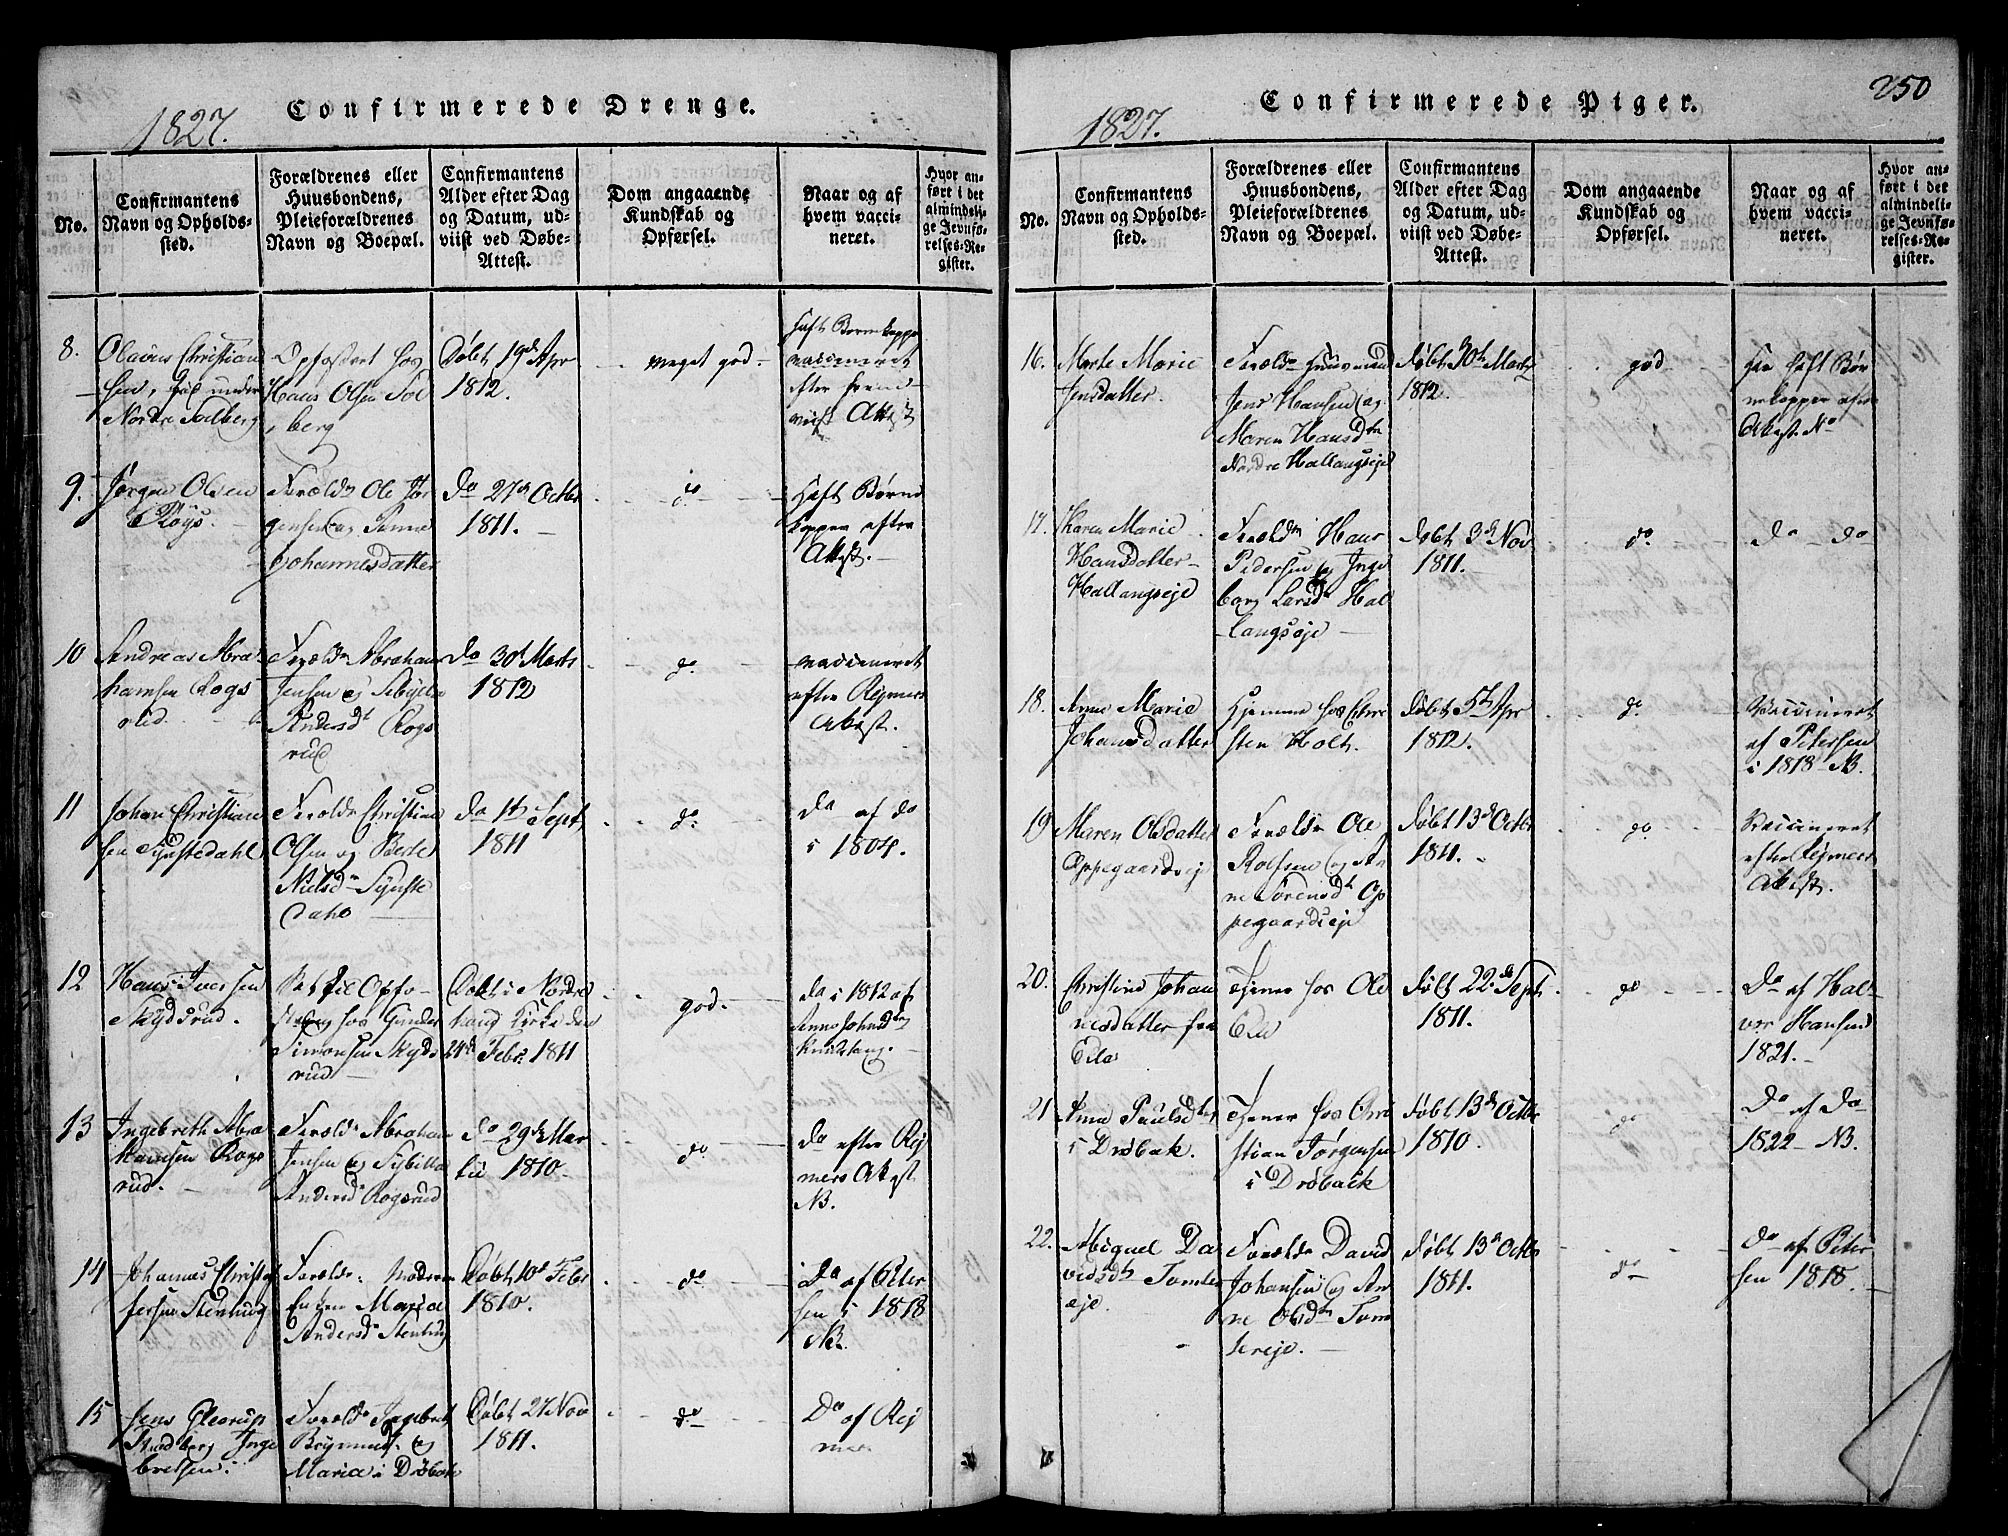 250
Confirmerede Drenge.
1827.
No.
Confirmantens
Navn og Opholds-
sted.
Forældrenes eller
Huusbondens,
Pleieforældrenes
Navn og Boepæl.
Confirmantens
Alder efter Dag
og Datum, ud-
viist ved Døbe-
Attest.
Dom angaaende
Kundskab og
Opførsel.
Naar og af
hvem vacci-
neret.
Hvor an-
ført i det
almindeli-
ge Jevnfø-
relses-Re-
gister.
8.
Olaves Christian
sen,
Nordre Solberg
Opfostret hos
Hans Olsen Sol
berg
Døbt 19d Apr
1812.
meget god
haft Børnekopper
vaccineret
efter frem
viist Attest
9.
Jørgen Olsen
Røys.
Foreldr Ole Jør
gensen og
Johannesdatter
do 27d Octbr
1811.
do
haft Børne
kopper efter
Attest.
10
Andreas Abra
hamsen Rogs
rud.
Foreldr Abraham
Jensen og
Andersdt Rogs
rud
do 30d Marts
1812
do
vaccineret
efter Rejmers
Attest.
11
Johan Christian
sen
Foreldr Christian
Olsen og Berte
Nielsd
dahl
do 1t Sept
1811
do
do af do
i 1804.
12
Hans Iversen
Skydsrud.
Opfo-
hos Gunder
Simonsen Skyds
rud
Døbt i Nordre
houg Kirke den
24de Febr 1811
god.
do i 1812 af
Anne Johnsd
13
Ingebreth Abra
hamsen Rogs
rud.
Foreldr Abraham
Jensen og Sybilla
Andersd Rogsrud
do 29de Mar
tii 1810.
do
do efter Rej
mers Attest
NB.
14
Johannes Christof
fersen Stenhug
Foreldr. Moderen
Enken Maria
Andersd Stenhug
Døbt 10d Febr
1810.
do
Do af Peter
sen i 1818
NB.
15
Jens Gleerup
Ingebretsen.
Foreldr Ingebret
og
Maria i Drøbak
Døbt 27 Nov
1811.
do
Do af Rej
mer
Confirmerede Piger.
1827.
No.
Confirmantens
Navn og Opholds-
sted.
Forældrenes eller
Huusbondens,
Pleieforældrenes
Navn og Boepæl.
Confirmantens
Alder efter Dag
og Datum, ud-
viist ved Døbe-
Attest.
Dom angaaende
Kundskab og
Opførsel.
Naar og af
hvem vacci-
neret.
Hvor an-
ført i det
almindeli-
ge Jevnfø-
relses-Re-
gister.
16.
Marte Marie
Jensdatter.
Foreldr Huusmand
Jens Hansen og
Maren Hansdtr
Nordre Hallangseje
døbt 30te Marts
1812.
god
Har haft Bør
nekopper efter
Attest
17.
Karen Marie
Hansdatter
Hallangseje
Foreldr Hans
Pedersen og Inge
borg Larsd Hal
langseje
døbt 3d Nov
1811.
do
do do
18.
Anne Marie
Johansdatter
Hjemme hos Chri
sten Holt.
døbt 5te Apr
1812.
do
Vaccineret
af Petersen
i 1818 NB.
19
Maren Olsdatter
Oppegaardseje
Foreldr Ole
Rolfsen og An
ne Sørensdt Op
pegaardseje
døbt 13d Octbr
1811.
do
Vaccineret
efter Rejmers
Attest.
20.
Christine Johan
nesdatter fra
Eile
Tjener hos Ole
Ele
døbt 22de Sept
1811.
do
Do af Hal-
vor Hansen
1821.
21
Anne Paulsdtr
i Drøbak.
Tjener hos Chri
stian Jørgensen
i Drøback
døbt 13de Octbr
1810.
do
Do af Do
1822 NB.
22.
Miquel Da
vidsdtr Tomter
eje.
Foreldr David
Johansen og An
ne Olsdtr Tom
tereje.
døbt 13d Octbr
1811.
do
do af Peter
sen 1818.